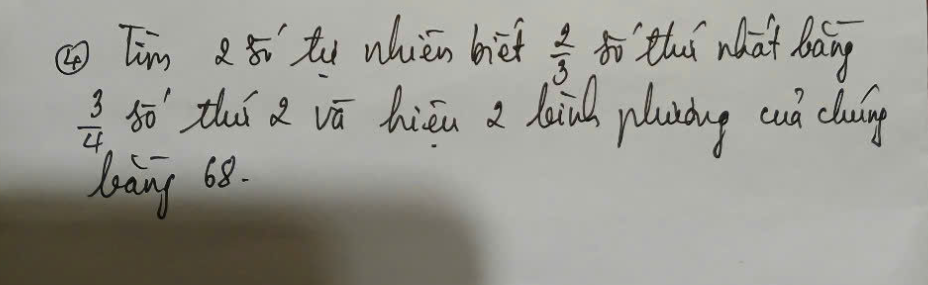 ④ Tìm 2 số tự nhiên biết 2/3 số thứ nhất bằng
3/4 số thứ 2 và hiệu 2 bình phương của chúng
bằng 68.